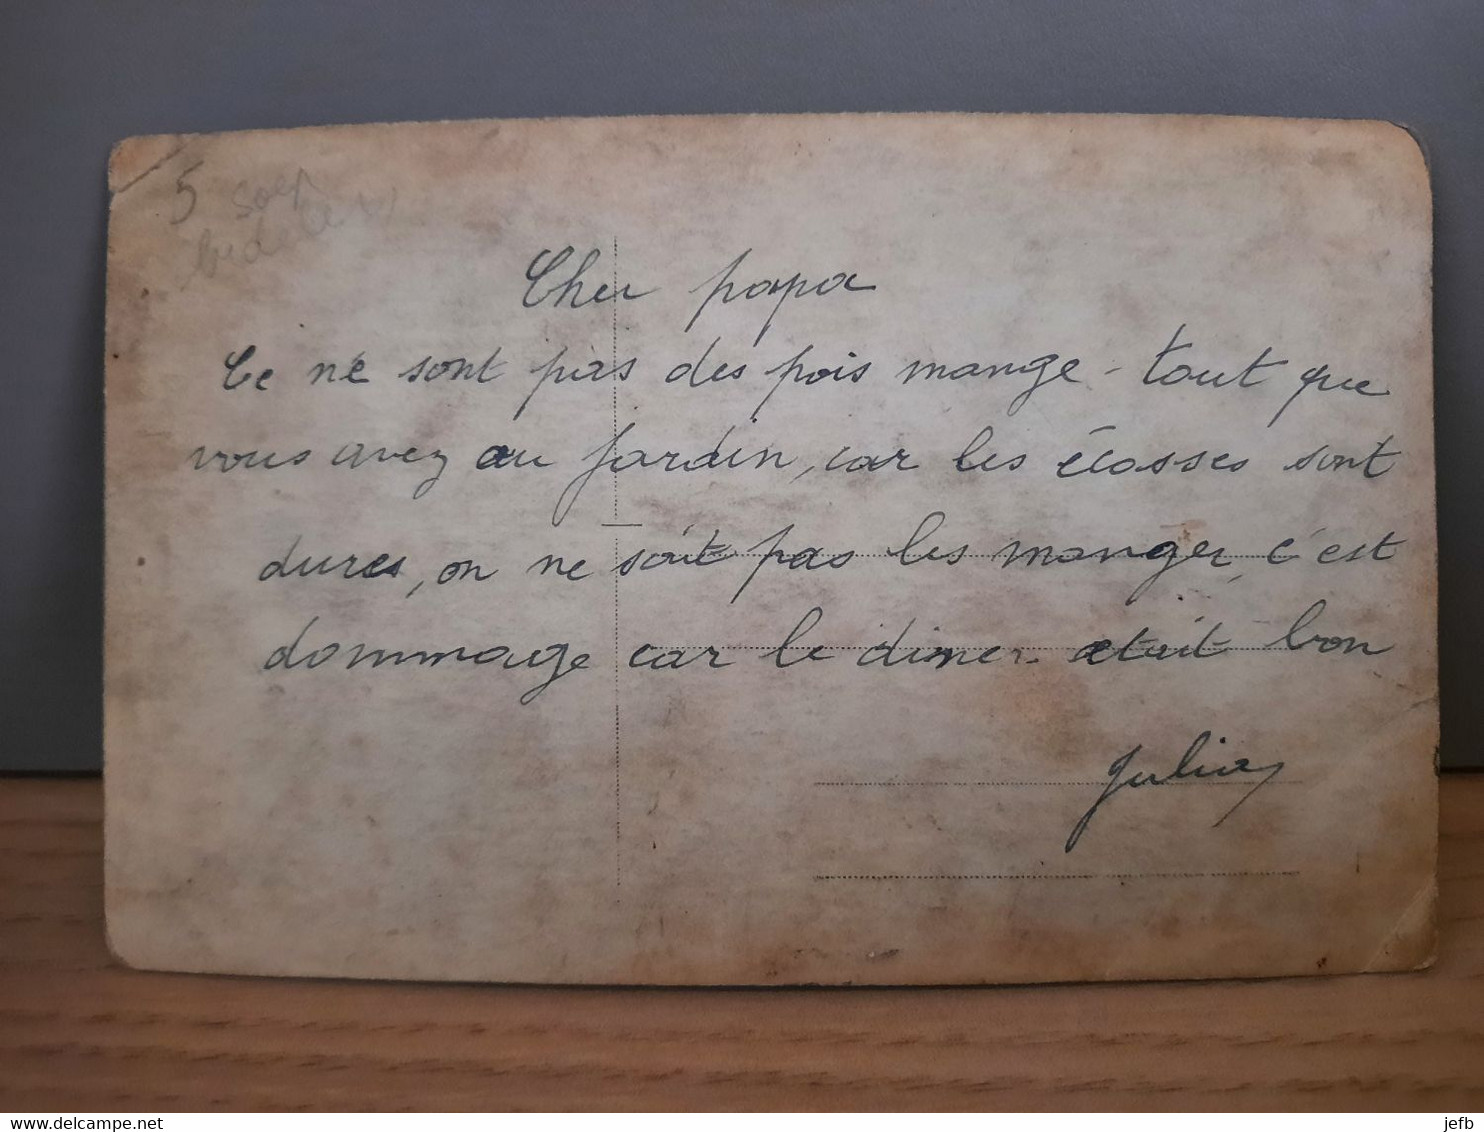 5 soep
Cher papa
Ce ne sont pas des pois mange-tout que
vous avez au jardin, car les écosses sont
dures, on ne sait pas les manger, c'est
dommage car le diner etait bon
Julia
delcampe.net
jefb